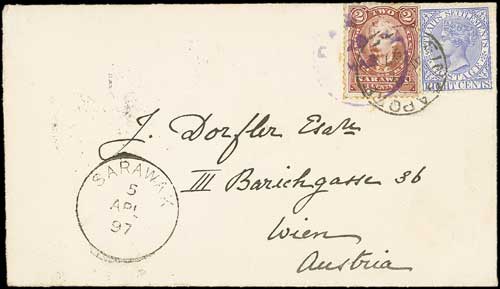 2 TWO 2
SARAWAK
CENTS
STRAITS SETTLEMENTS
POSTAGE
EIGHT CENTS
SINGAPORE
J. Dorfler Esqre
III Barichgasse 36
Wien
Austria
SARAWAK
5
APL
97